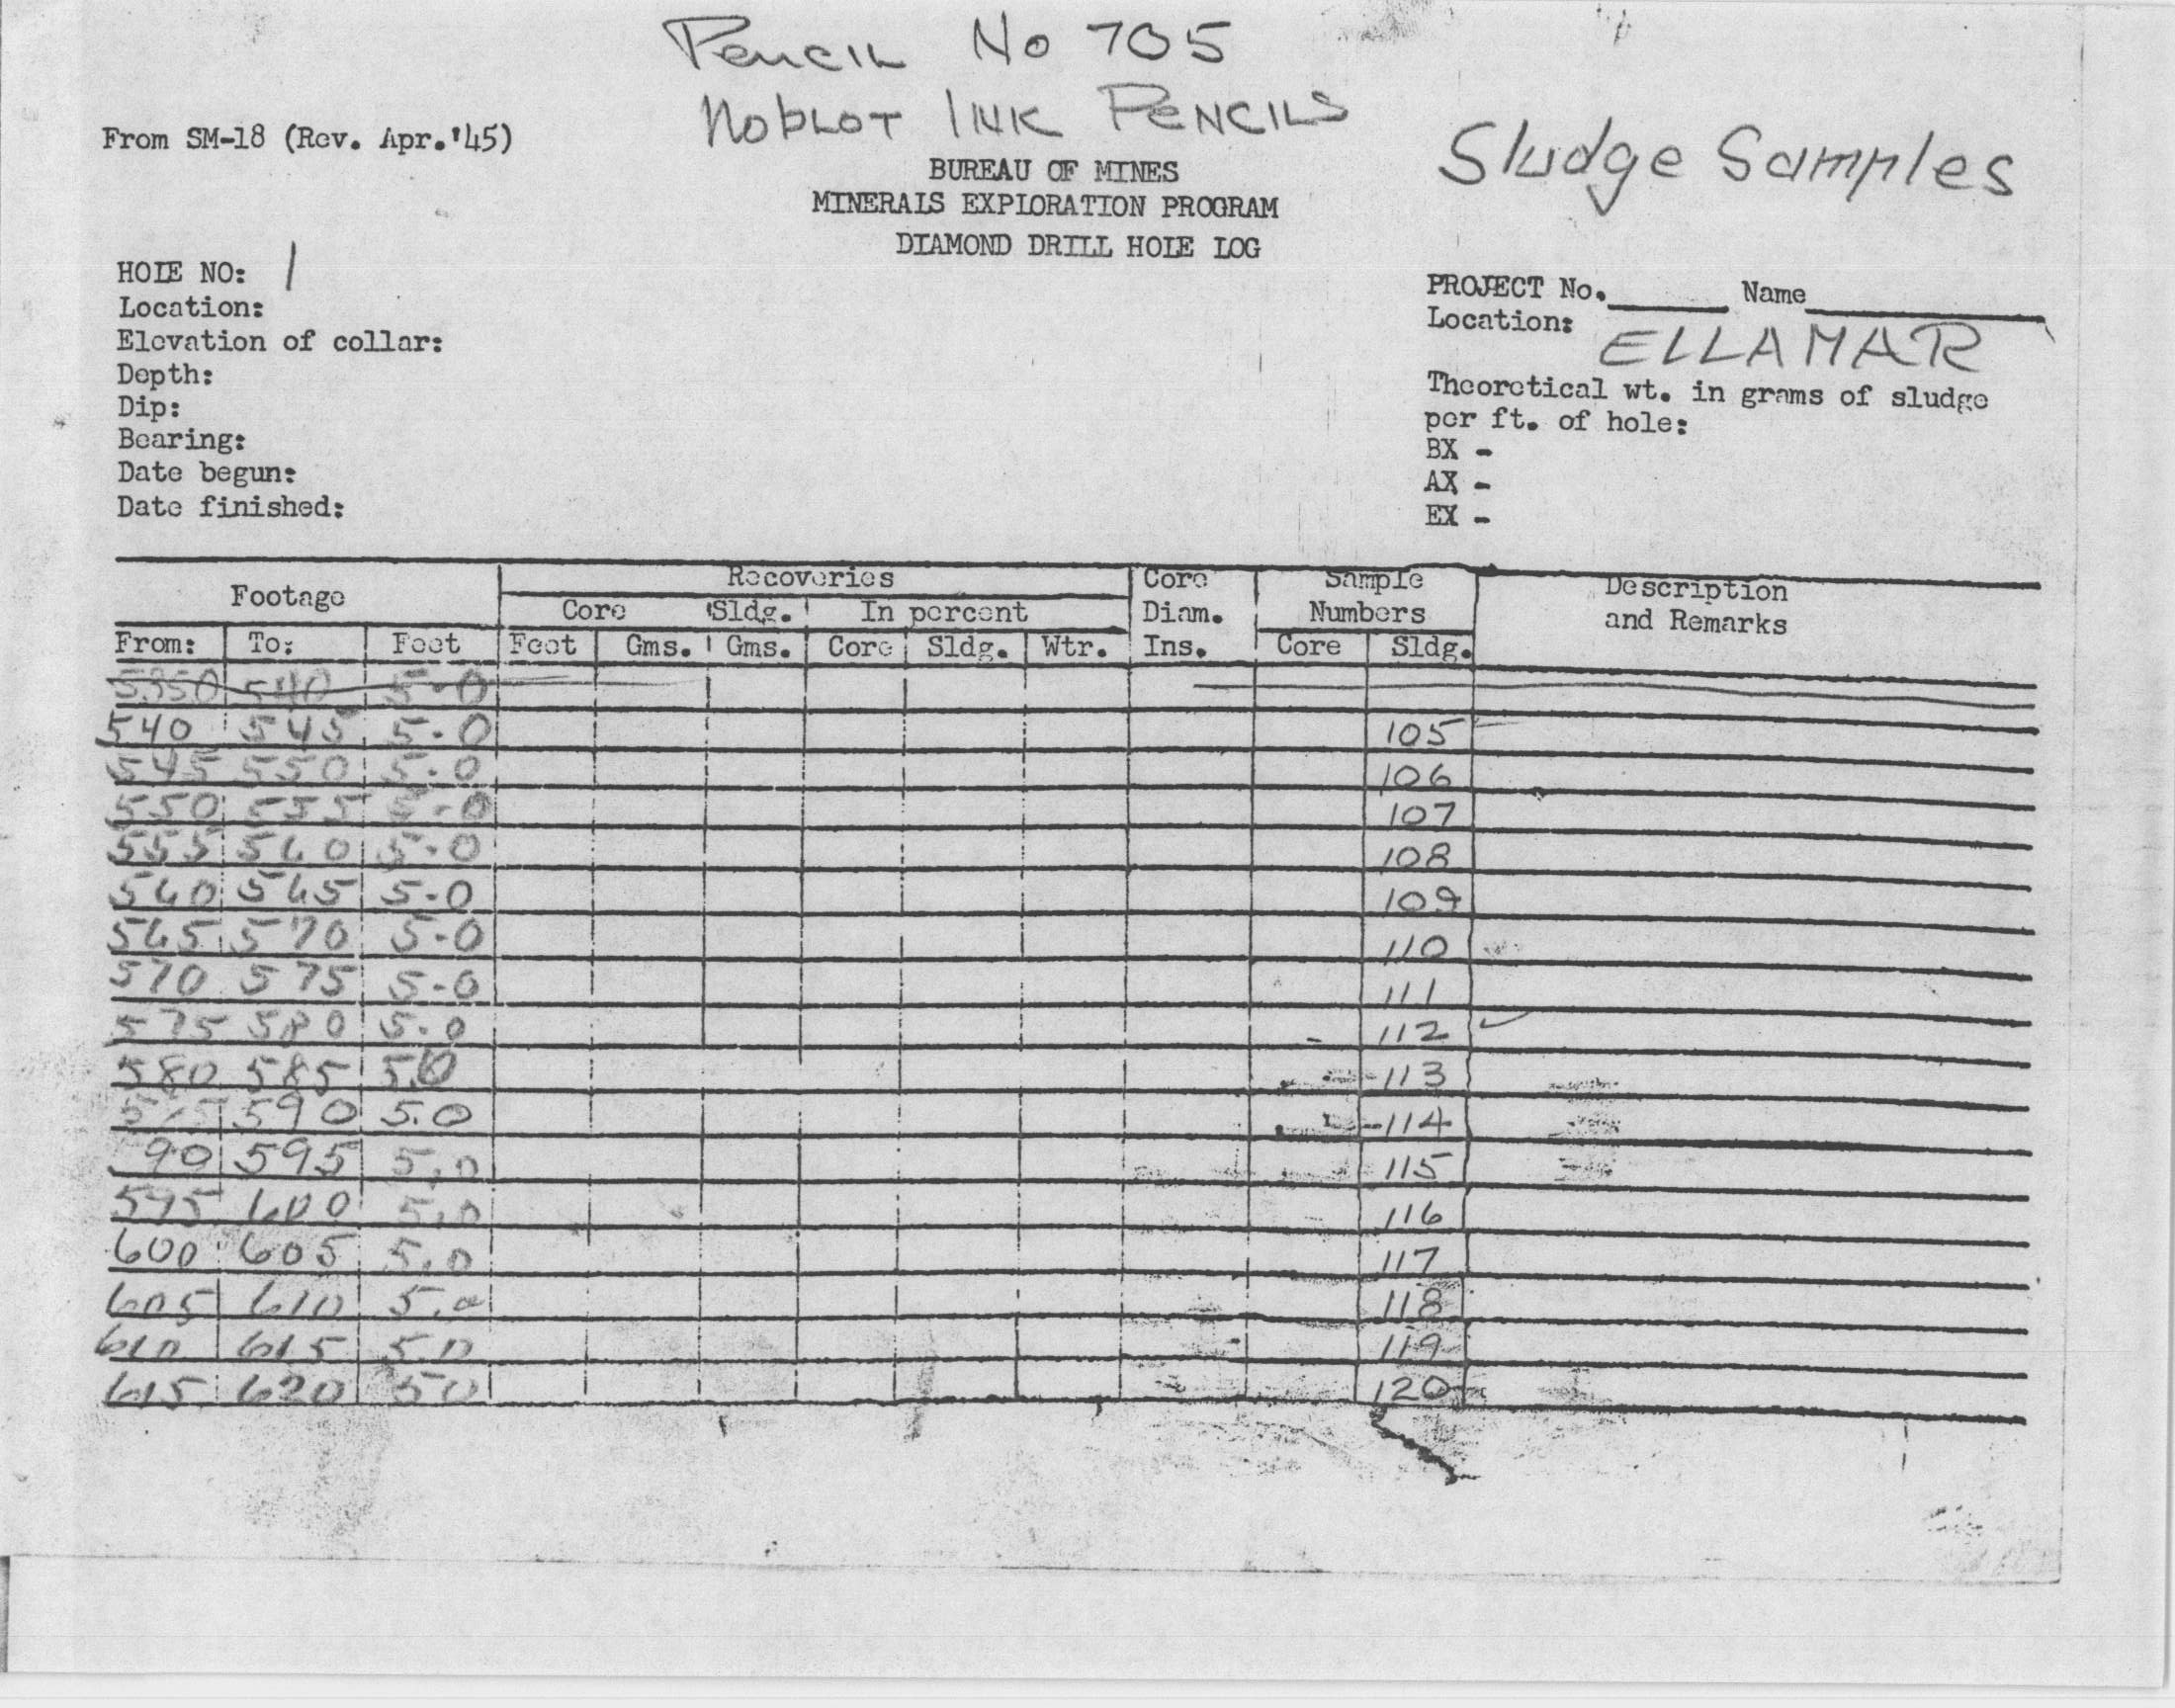 Pencil No 705
Noblot Ink Pencils
From SM-18 (Rev. Apr.'45)
Sludge Samples
BUREAU OF MINES
MINERALS EXPLORATION PROGRAM
DIAMOND DRILL HOLE LOG
HOLE NO: 1
Location:
Elevation of collar:
Depth:
Dip:
Bearing:
Date begun:
Date finished:
PROJECT No. Name
Location: ELLAMAR
Theoretical wt. in grams of sludge
per ft. of hole:
BX -
AX -
EX -
Footage Recoveries Core Diam. Ins. Sample Numbers Description and Remarks
Core Sldg. In percent
From: To: Feet Feet Gms. Gms. Core Sldg. Wtr. Core Sldg.
540 5-0
540 545 5-0 105
545 550 5-0 106
550 555 5-0 107
555 560 5-0 108
560 565 5-0 109
565 570 5-0 110
570 575 5-0 111
575 580 5.0 112
580 585 5.0 113
590 5.0 114
90 595 5.0 115
595 600 5.0 116
600 605 5.0 117
605 610 5.0 118
610 615 5.0 119
615 620 50 120